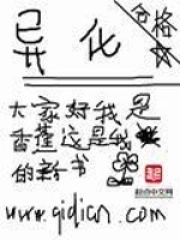 异化
合格
大家好我是
香蕉这是我
的新书
起点中文网
www.qidian.com